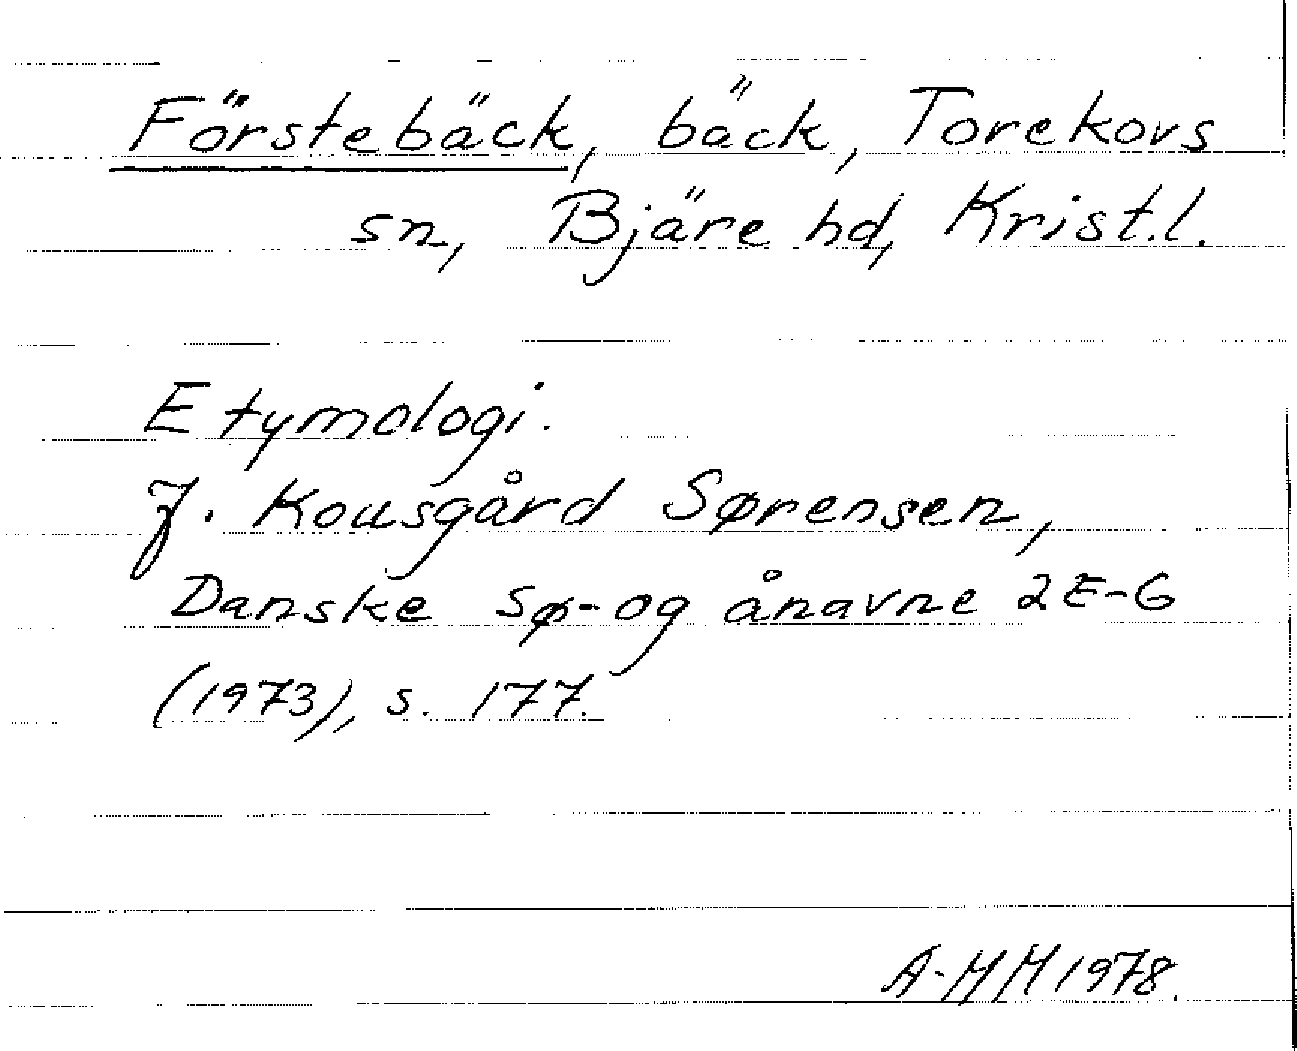 Förstebäck, bäck, Torekovs
sn, Bjäre hd, Krist.l.
Etymologi.
J. Kousgård Sørensen,
Danske sø- og ånavne 2 E-G
(1973), s. 177.
A-MM 1978.